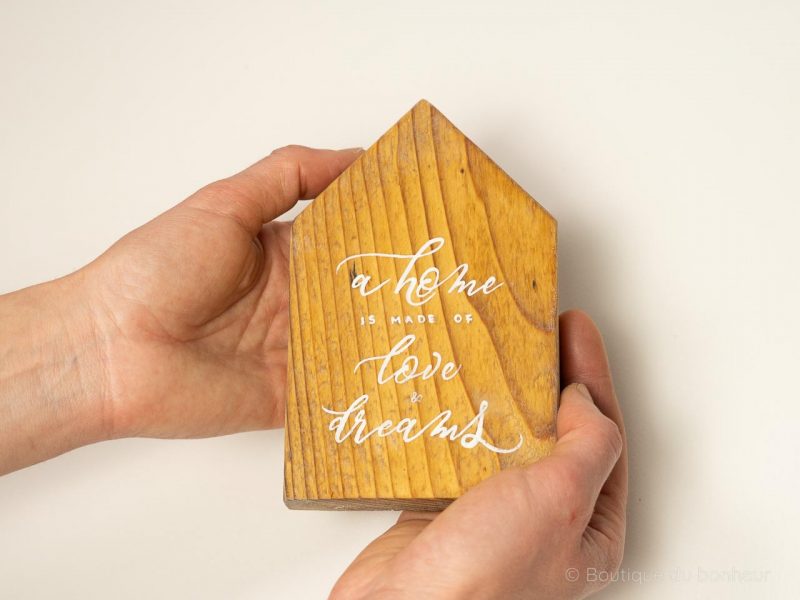 a home
IS MADE OF
love
&
dreams
© Boutique du bonheur